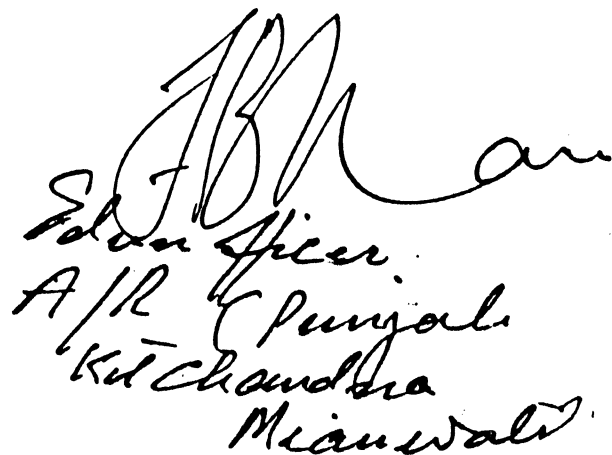 Edun Officer.
A/R (Punjab
Kot Chandna
Mianwali.